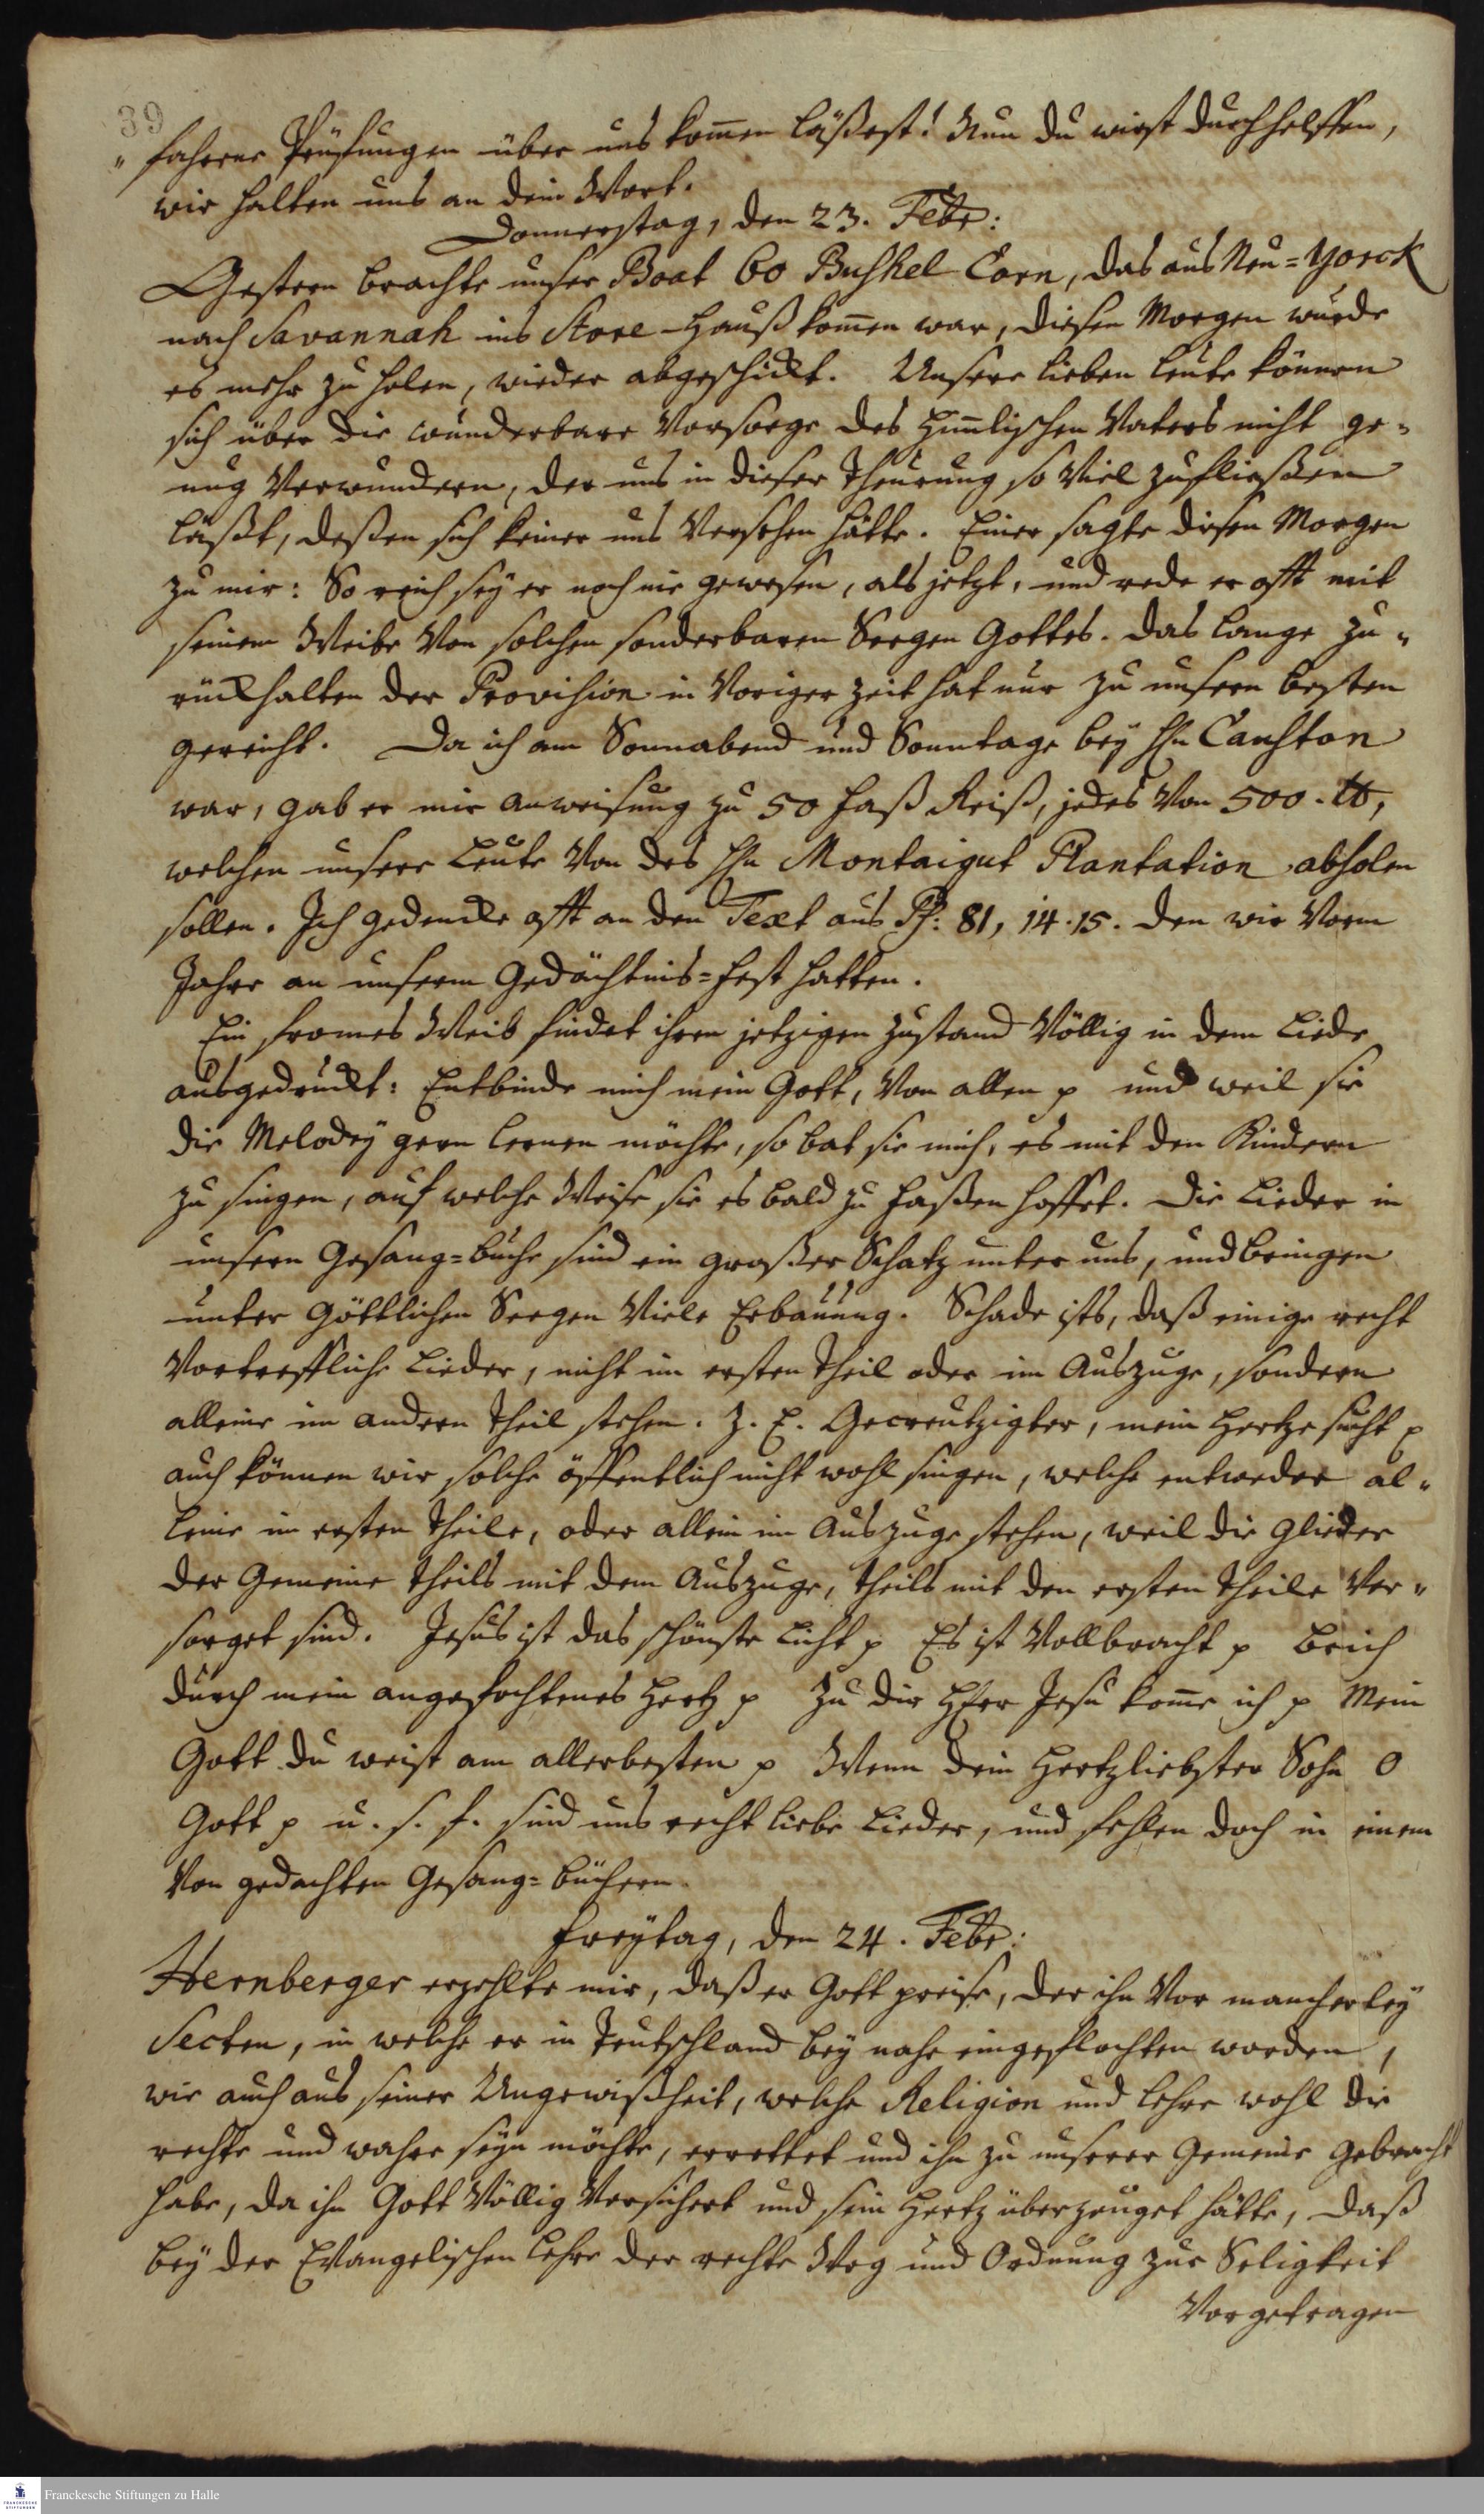 39
„ fahrene Prüfungen über uns kom̄en läßest! Nun du wirst durchhelffen,
wir halten uns an dein Wort.
Donnerstag, den 23. Febr:
Gestern brachte unser Boat 60 Bushel Corn, das aus Neu=Yorck
nach Savannah ins Store-Hauß kom̄en war, diesen Morgen wurde
es mehr zu holen, wieder abgeschickt. Unsere lieben Leute können
sich über die wunderbare Vorsorge des Him̄lischen Vaters nicht ge-
nug Verwundern, der uns in dieser Theurung so Viel zufließen
läßt, deßen sich keiner uns Versehen hätte. Einer sagte diesen Morgen
zu mir: So reich sey er noch nie gewesen, als jetzt, und rede er offt mit
seinem Weibe Von solchen sonderbaren Seegen Gottes. Das lange zu-
rückhalten der Provision in Voriger Zeit hat nur zu unsern besten
gereicht. Da ich am Sonnabend und Sonntage bey Hn Causton
war, gab er mir anweisung zu 50 Faß Reiß, jedes Von 500. ℔,
welchen unsere Leute Von des Hn Montaigut Plantation abholen
sollen. Ich gedencke offt an den Text aus Ps: 81, 14.15. den wir Vorm
Jahre an unserm Gedächtnis=Fest hatten.
Ein fromes Weib findet ihren jetzigen Zustand Völlig in dem Liede
ausgedruckt: Entbinde mich mein Gott, Von allen p und weil sie
die Melodey gern lernen möchte, so bat sie mich, es mit den Kindern
zu singen, auf welche Weise sie es bald zu faßen hoffet. Die Lieder in
unsern Gesang=buche sind ein großer Schatz unter uns, und bringen
unter Göttlichen Seegen Viele Erbauung. Schade ists, daß einige recht
Vortreffliche Lieder, nicht im ersten Theil oder im Auszuge, sondern
alleine im andern Theil stehen. Z. E. Gecreutzigter, mein Hertze sucht p
auch können wir solche öffentlich nicht wohl singen, welche entweder al-
leine im ersten Theile, oder allein im Auszuge stehen, weil die Glieder
der Gemeine theils mit dem Auszuge, theils mit den ersten Theile Ver-
sorget sind. Jesus ist das schönste Licht p Es ist Vollbracht p Brich
durch mein angefochtenes Hertz p Zu dir HErr Jesu kom̄e ich p Mein
Gott du weist am allerbesten p Wenn dein Hertzliebster Sohn O
Gott p u. s. f. sind uns recht liebe Lieder, und fehlen doch in einem
Von gedachten Gesang=büchern.
Freytag, den 24. Febr:
Hernberger erzehlte mir, daß er Gott preise, der ihn Vor mancherley
Secten, in welche er in Teutschland bey nahe eingeflochten worden,
wie auch aus seiner Ungewißheit, welche Religion und Lehre wohl die
rechte und wahre seyn möchte, errettet und ihn zu unserer Gemeine gebracht
habe, da ihn Gott Völlig Versichert und sein Hertz überzeuget hätte, daß
bey der Evangelischen Lehre der rechte Weg und Ordnung zur Seligkeit
Vorgetragen
FRANCKESCHE STIFTUNGEN
Franckesche Stiftungen zu Halle